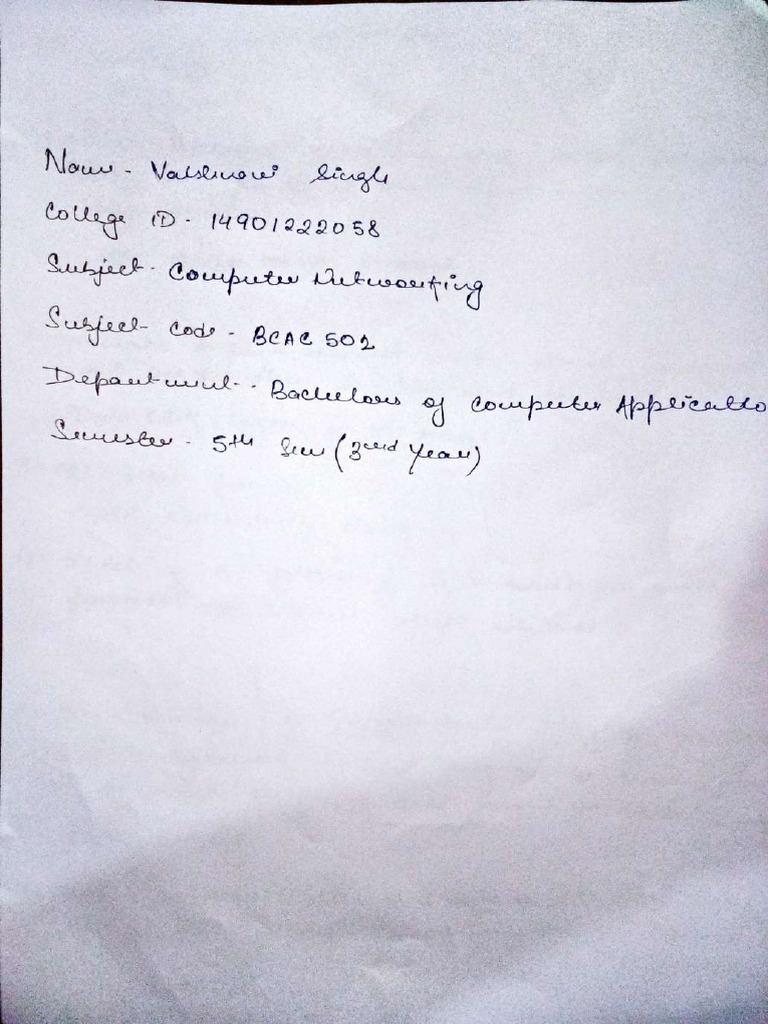 Name - Vaishnavi Singh
College ID - 14901222058
Subject - Computer Networking
Subject code - BCAC 502
Department - Bachelors of Computer Applicatio
Semester - 5th Sem (3rd Year)